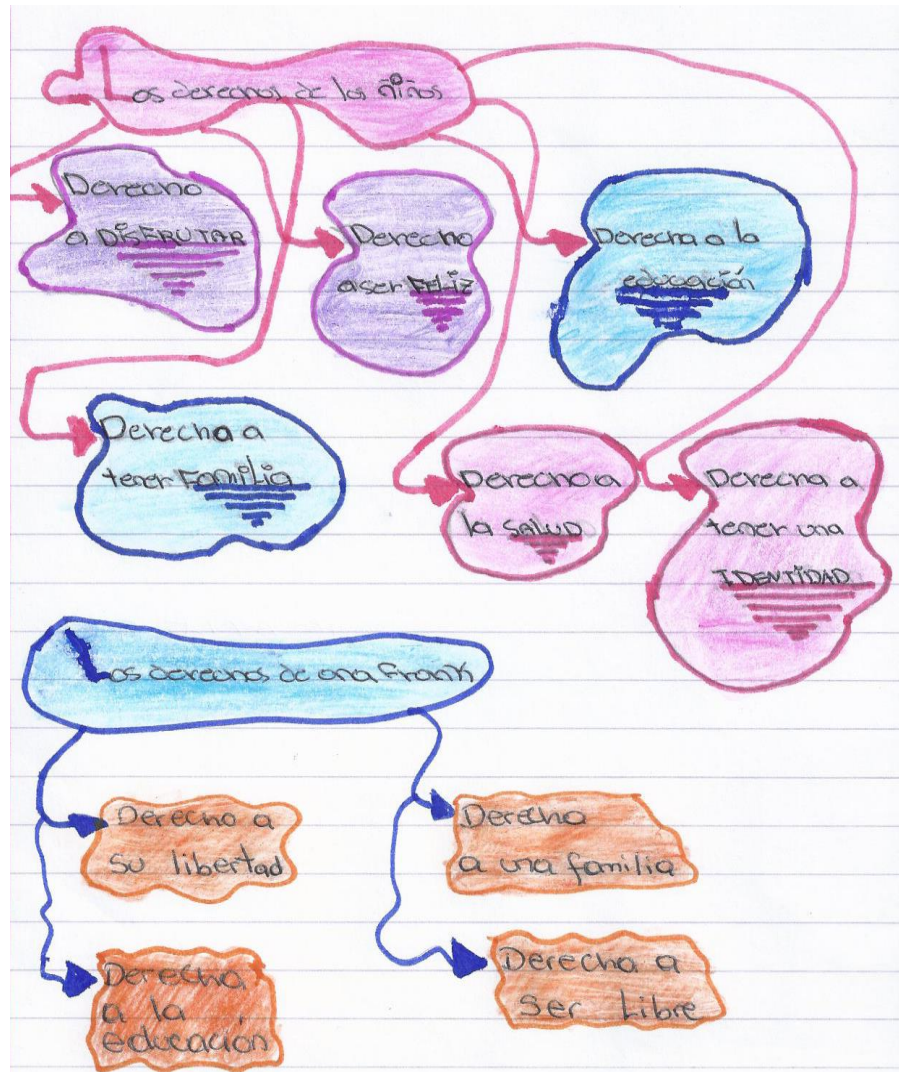 Los derechos de los niños
Derecho
a DISFRUTAR
Derecho
a ser FELIZ
Derecha a la
educación
Derecha a
tener Familia
Derecho a
la SALUD
Derecha a
tener una
IDENTIDAD
Los derechos de ana Frank
Derecho a
su libertad
Derecha
a una familia
Derecha
a la
educación
Derecha a
ser Libre